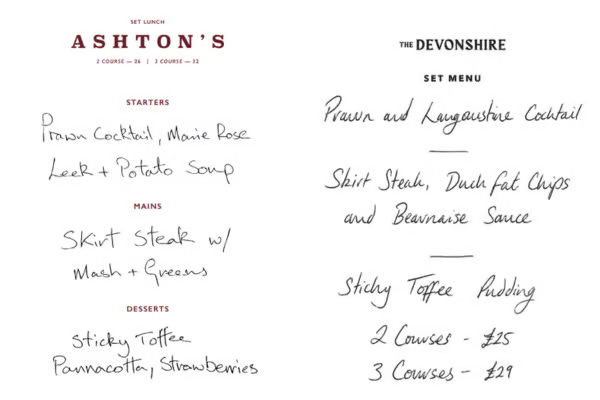 SET LUNCH
ASHTON'S
2 COURSE — 26 | 3 COURSE — 32
STARTERS
Prawn Cocktail, Marie Rose
Leek + Potato Soup
MAINS
Skirt Steak w/
Mash + Greens
DESSERTS
Sticky Toffee
Pannacotta, Strawberries
THE DEVONSHIRE
SET MENU
Prawn and Langoustine Cocktail
Skirt Steak, Duck fat Chips
and Bearnaise Sauce
Sticky Toffee Pudding
2 Courses - £25
3 Courses - £29